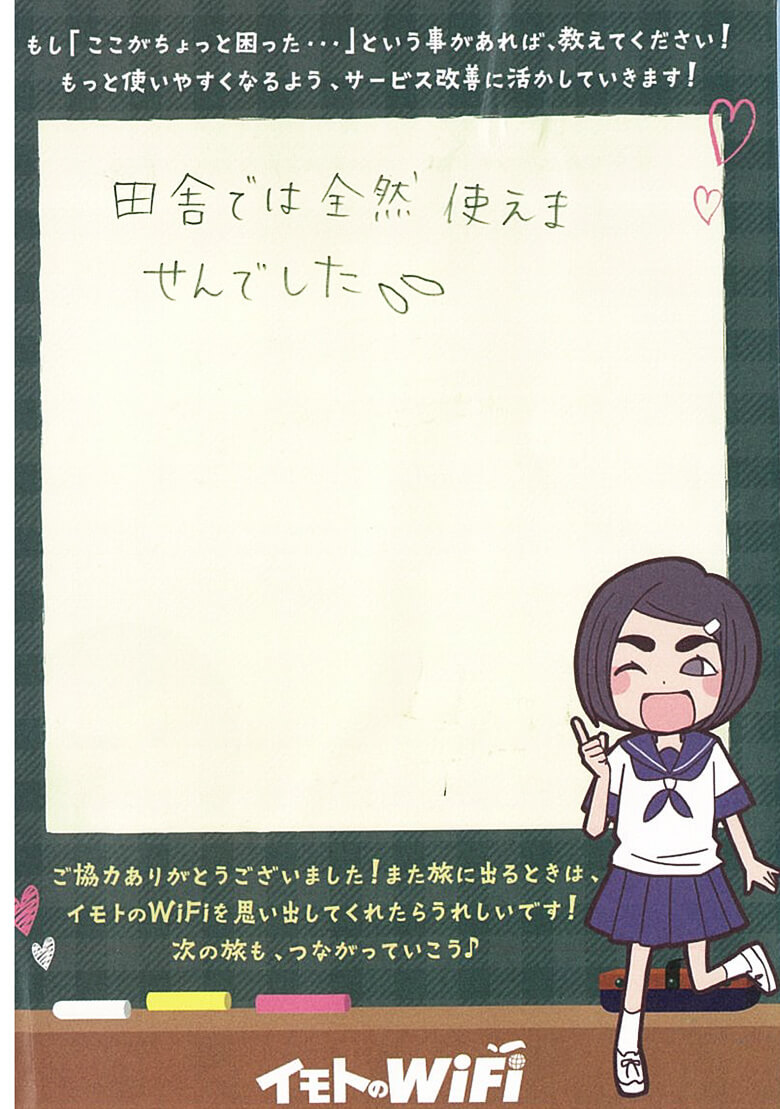 もし「ここがちょっと困った・・・」という事があれば、教えてください!
もっと使いやすくなるよう、サービス改善に活かしていきます!
田舎では全然使えま
せんでした
ご協力ありがとうございました!また旅に出るときは、
イモトのWiFiを思い出してくれたらうれしいです!
次の旅も、つながっていこう♪
イモトのWiFi